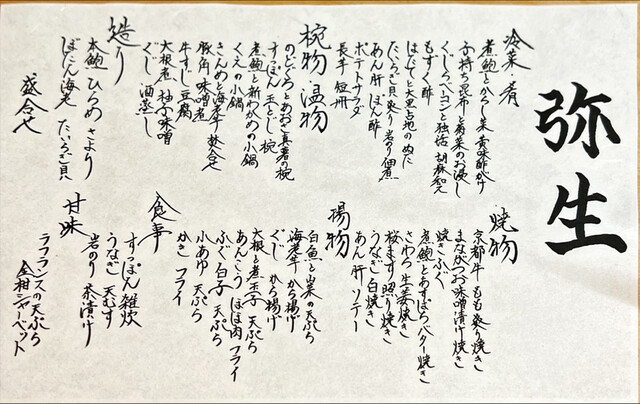 弥生
冷菜・肴
煮鮑とからし菜 黄味酢がけ
子持ち昆布と菊菜のお浸し
くじらベーコンと独活 胡麻和え
もずく酢
ほたてと大黒占地のぬた
たいらぎ貝炙り 岩のり佃煮
あん肝 ぽん酢
ポテトサラダ
長芋 短冊
椀物 温物
のどぐろとあおさ真薯の椀
すっぽん 玉〆とじ 椀
煮鮑と新わかめの小鍋
くえの小鍋
さんめと海老芋 炊合せ
豚角 味噌煮
牛すじ 豆腐
大根煮 柚子味噌
ぐじ 酒蒸し
造り
本鮪 ひらめ さより
ぼたん海老 たいらぎ貝
盛合せ
焼物
京都牛 もも炙り焼き
まながつお味噌漬け焼き
焼きふぐ
煮鮑とあすぱらバター焼き
さわら生姜焼き
桜ます 照り焼き
うなぎ 白焼き
あん肝 ソテー
揚物
白魚と山菜の天ぷら
海老芋 から揚げ
ぐじ から揚げ
大根と煮玉子 天ぷら
あんこう ほほ肉 フライ
ふぐ白子 天ぷら
小あゆ 天ぷら
かき フライ
食事
すっぽん 雑炊
うなぎ 天むす
岩のり 茶漬け
甘味
ラフランスの天ぷら
金柑シャーベット